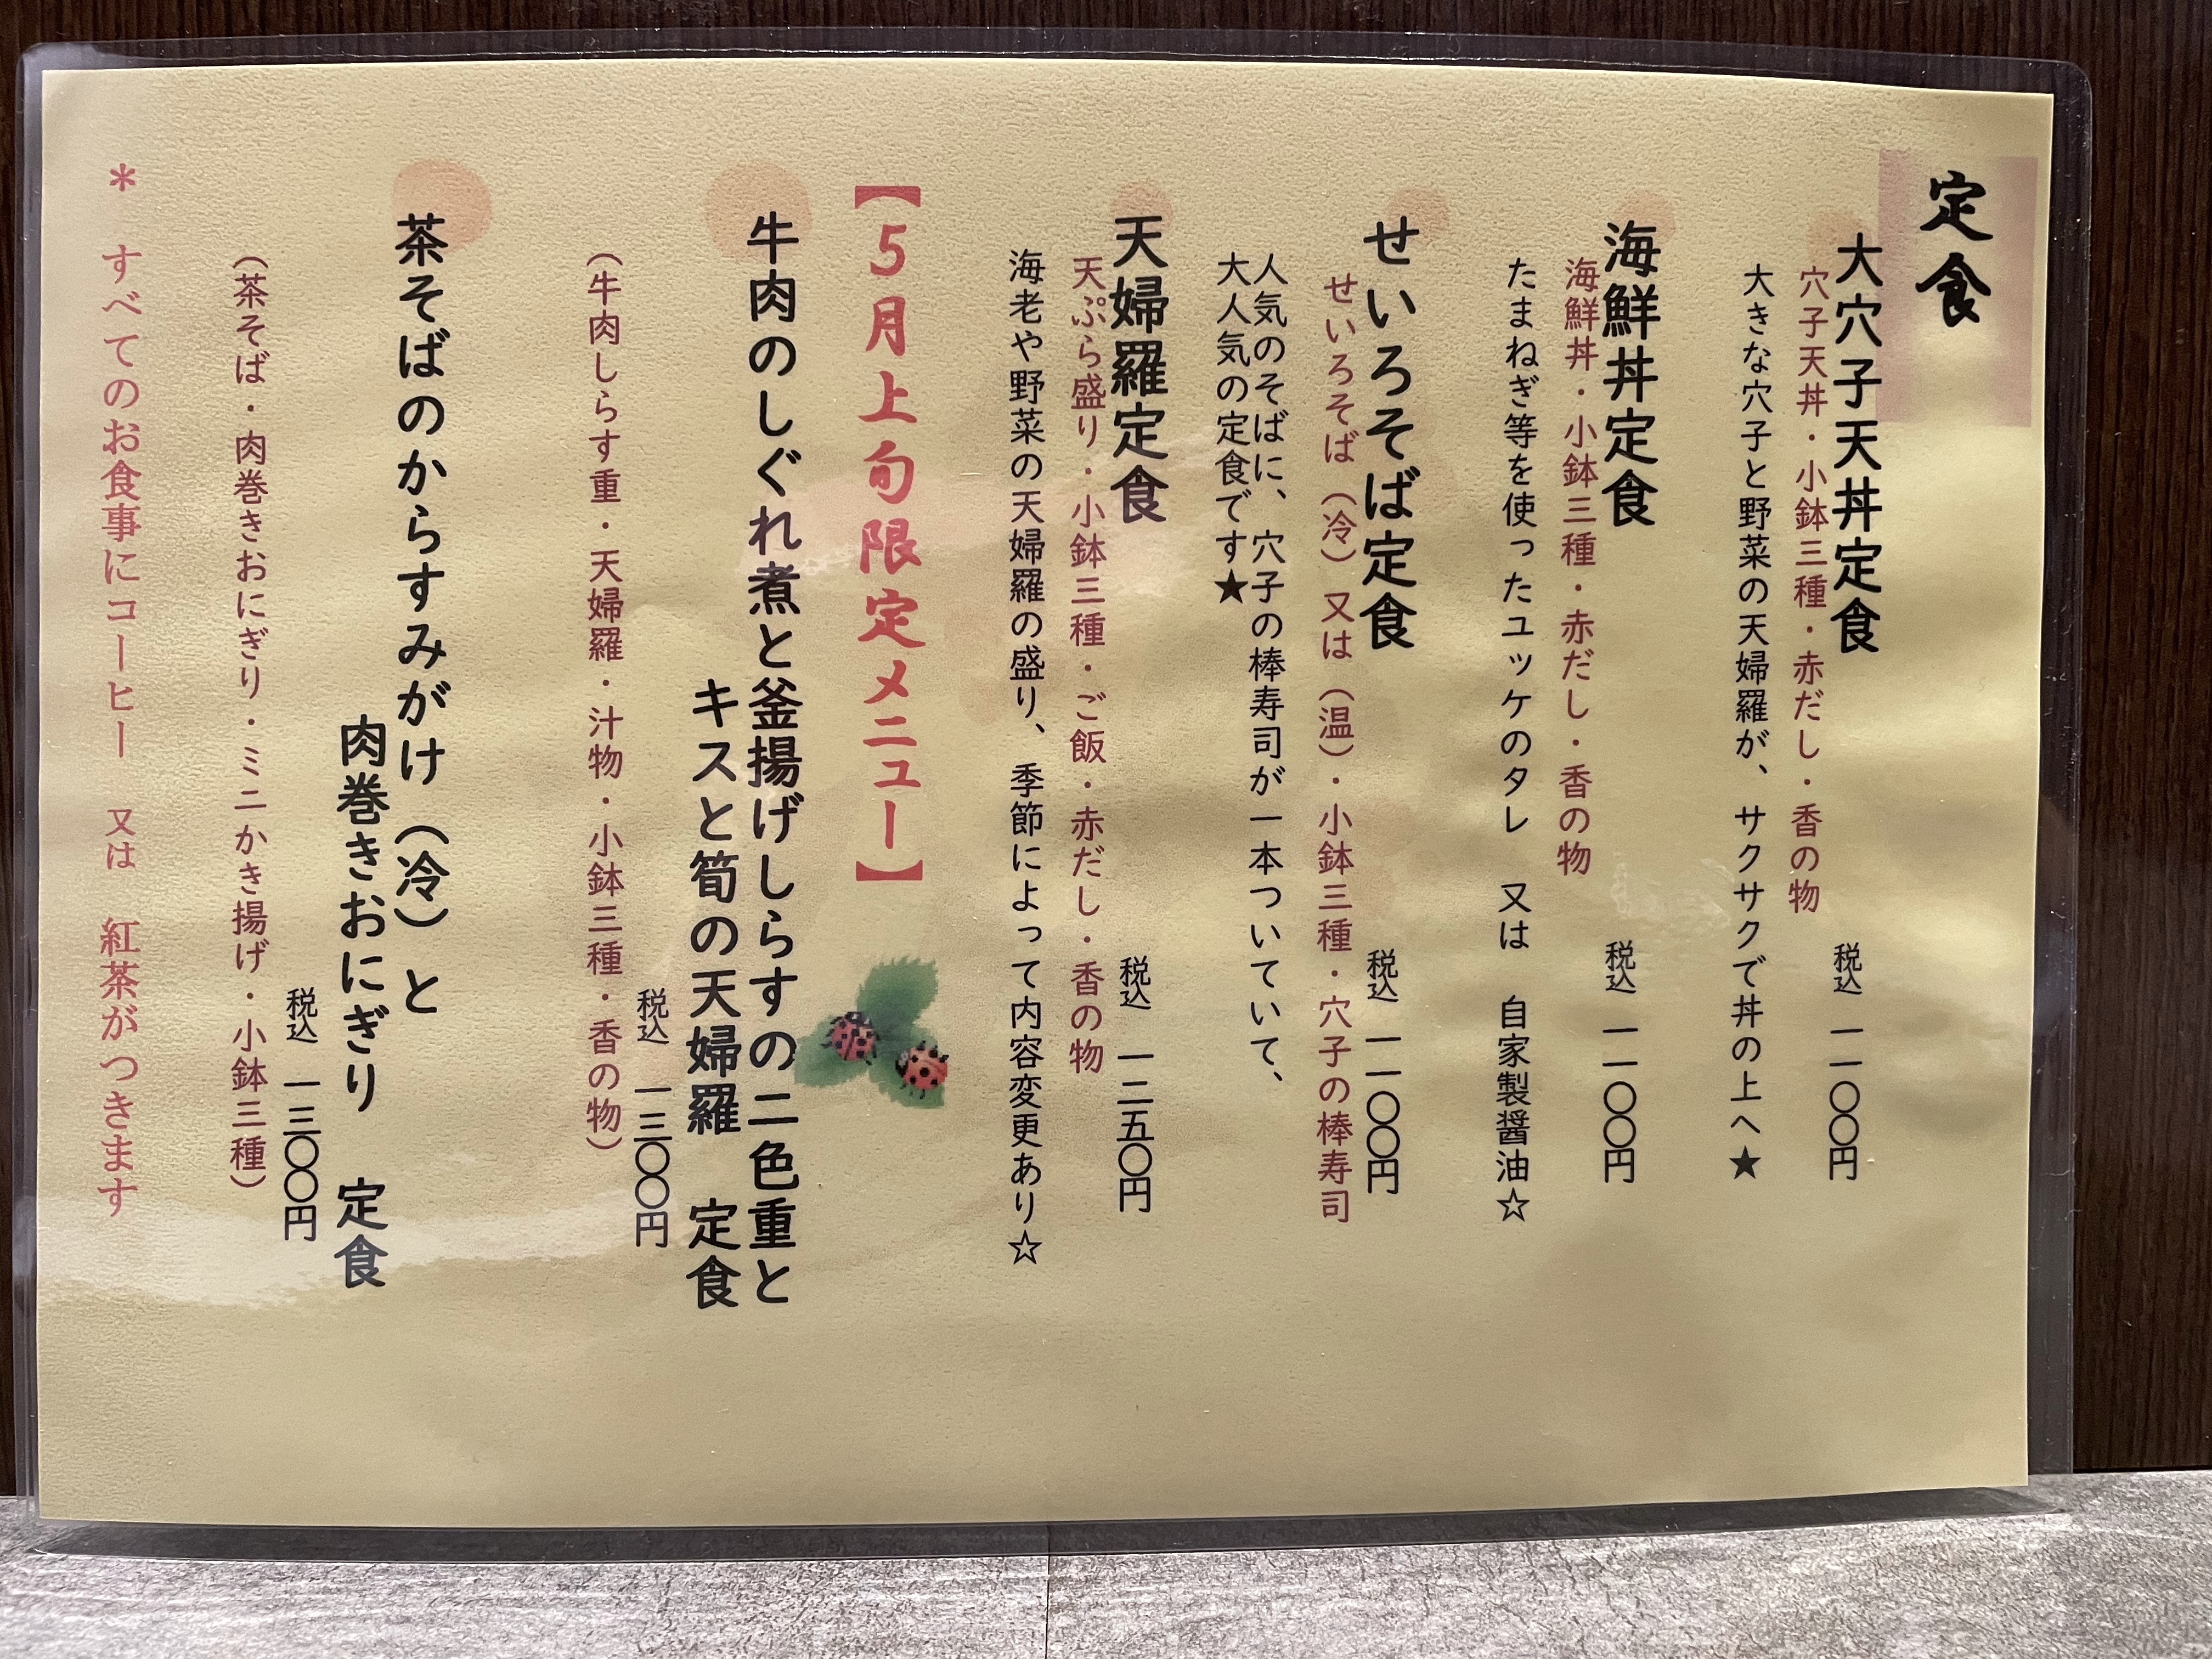 定食
大穴子天丼定食
税込 一一〇〇円
穴子天丼・小鉢三種・赤だし・香の物
大きな穴子と野菜の天婦羅が、サクサクで丼の上へ★
海鮮丼定食
税込 一一〇〇円
海鮮丼・小鉢三種・赤だし・香の物
たまねぎ等を使ったユッケのタレ 又は 自家製醤油☆
せいろそば定食
税込 一一〇〇円
せいろそば（冷）又は（温）・小鉢三種・穴子の棒寿司
人気のそばに、穴子の棒寿司が一本ついていて、
大人気の定食です★
天婦羅定食
税込 一二五〇円
天ぷら盛り・小鉢三種・ご飯・赤だし・香の物
海老や野菜の天婦羅の盛り、季節によって内容変更あり☆
【5月上旬限定メニュー】
牛肉のしぐれ煮と釜揚げしらすの二色重と
キスと筍の天婦羅 定食
税込 一三〇〇円
（牛肉しらす重・天婦羅・汁物・小鉢三種・香の物）
茶そばのからすみがけ（冷）と
肉巻きおにぎり 定食
税込 一三〇〇円
（茶そば・肉巻きおにぎり・ミニかき揚げ・小鉢三種）
＊ すべてのお食事にコーヒー 又は 紅茶がつきます